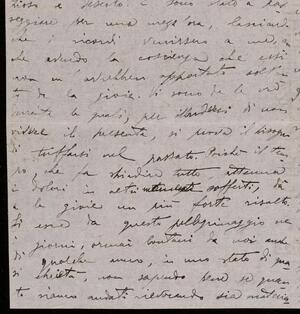 e deserto. E sono stato a pas
seggiare per una mezz'ora lasciando
che i ricordi venissero a me,
che avendo la coscienza che essi
non m'avrebbero apportato solt
to da le gioie. Vi sono de le ore
durante le quali, per illudersi di non
vivere il presente, si prova il bisogno
di tuffarsi nel passato. Poichè il tem
po, che fa stridire tutto attenua
i dolori in altri sofferti, dà
a le gioie un più forte risalto.
Si esce da questo pellegrinaggio ne
i giorni, ormai lontani da noi
qualche anno, in uno stato di
, non sapendo bene se quan
to siamo andati rievocando sia